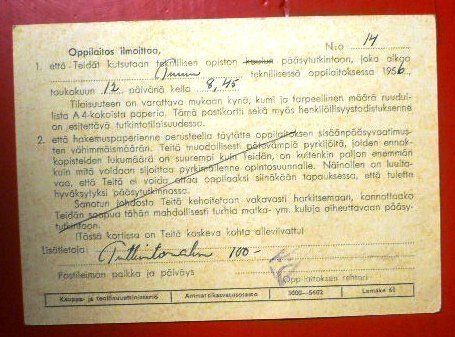 Oppilaitos ilmoittaa, N:o 14
1. että Teidät kutsutaan teknillisen opiston koulun pääsytutkintoon, joka alkaa
teknillisessä oppilaitoksessa 1956,
toukokuun 12 päivänä kello 8,45
Tilaisuuteen on varattava mukaan kynä, kumi ja tarpeellinen määrä ruudul-
lista A 4-kokoista paperia. Tämä postikortti sekä myös henkilöllisyystodistuksenne
on esitettävä tutkintotilaisuudessa.
2. että hakemuspaperienne perusteella täytätte oppilaitoksen sisäänpääsyvaatimus-
ten vähimmäismäärän. Teitä muodollisesti pätevämpiä pyrkijöitä, joiden ennak-
kopisteiden lukumäärä on suurempi kuin Teidän, on kuitenkin paljon enemmän
kuin mitä voidaan sijoittaa pyrkimällenne opintosuunnalle. Näillen on luulta-
vaa, että Teitä ei voida ottaa oppilaaksi siinäkään tapauksessa, että tulette
hyväksytyksi pääsytutkinnossa.
Sanotun johdosta Teitä kehoitetaan vakavasti harkitsemaan, kannattaako
Teidän saapua tähän mahdollisesti turhia matka- ym. kuluja aiheuttavaan pääsy-
tutkintoon.
(Tässä kortissa on Teitä koskeva kohta alleviivattu)
Lisätietoja: 100-
Postileiman paikka ja päiväys Oppilaitoksen rehtori
Kauppa- ja teollisuusministeriö Ammattikasvatusosasto 5000—5462 Lomake 62